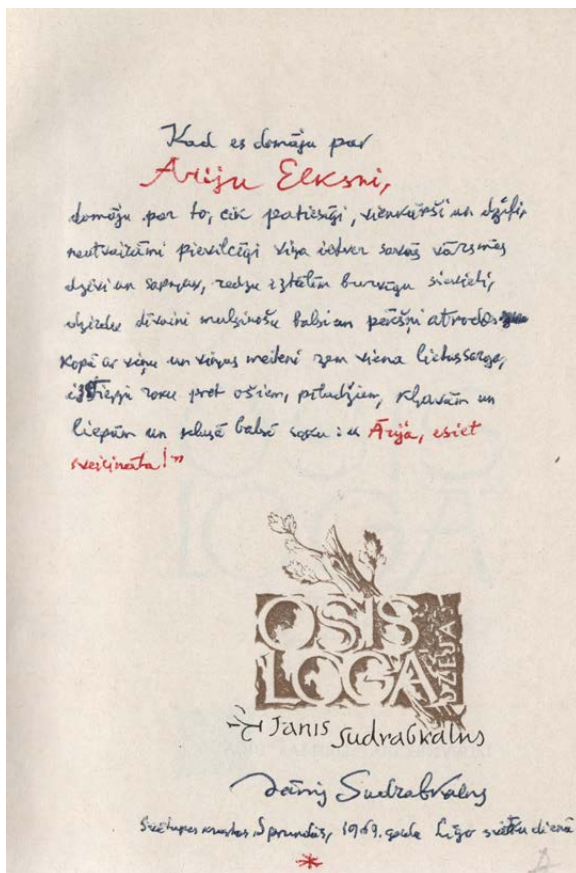 Kad es domāju par
Āriju Elksni,
domāju par to, cik patiesīgi, vienkārši un dziļi,
neatvairāmi pievilcīgi viņa ietver savās vārsmās
dzīvi un sapņus, redzu iztālēm burvīgu sievieti,
dzirdu dīvaini mulsinošu balsi un pēkšņi atrodos
kopā ar viņu un viņas meiteni zem viena lietussarga,
izstiepju roku pret ošiem, pīlādžiem, kļavām un
liepām un klusā balsī saku: „Ārija, esiet
sveicināta!”
OSIS
LOGĀ
DZEJAS
Jānis Sudrabkalns
Jānis Sudrabkalns
Svētupes krastos 1969. gada Līgo svētku dienā